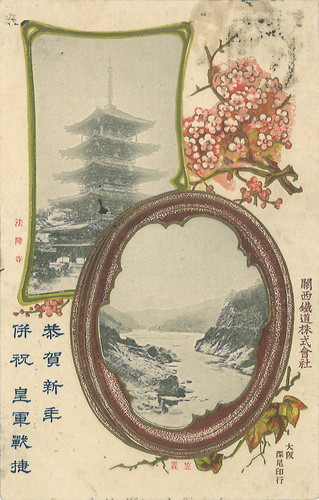 法隆寺
關西鐵道株式會社
恭賀新年
併祝 皇軍戰捷
笠置
大阪
深尾印行